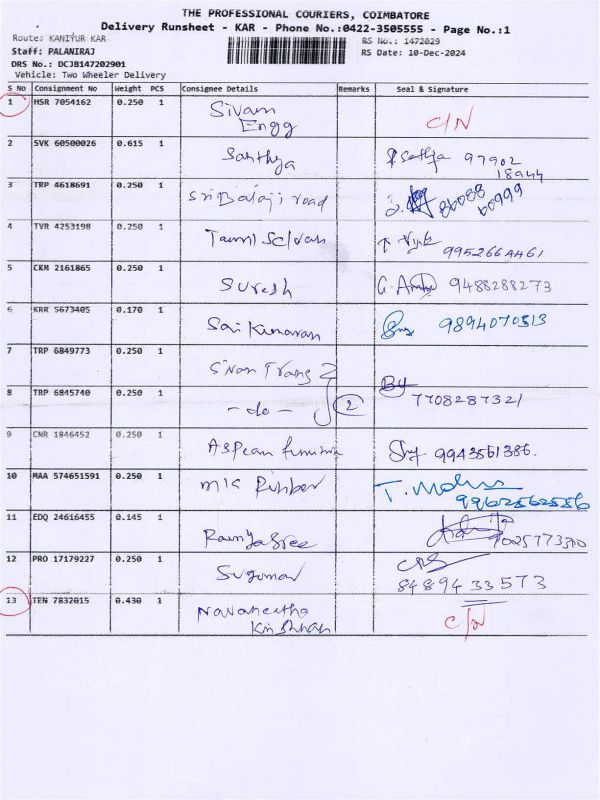 THE PROFESSIONAL COURIERS, COIMBATORE
Delivery Runsheet - KAR - Phone No.:0422-3505555 - Page No.:1
Route: KANIYUR KAR RS No.: 1472029
Staff: PALANIRAJ RS Date: 10-Dec-2024
DRS No.: DCJB147202901
Vehicle: Two Wheeler Delivery
S No Consignment No Weight PCS Consignee Details Remarks Seal & Signature
1 HSR 7054162 0.250 1 Sivam Engg C/N
2 SVK 60500026 0.615 1 Santhya 97902 18944
3 TRP 4618691 0.250 1 Sri Balaji road 86088 60999
4 TVR 4253198 0.250 1 Tamil Selvan 9952664461
5 CKM 2161865 0.250 1 Suresh 9488288273
6 KRR 5673405 0.170 1 Sai Kumaran 9894070313
7 TRP 6849773 0.250 1 Sivan Trans
8 TRP 6845740 0.250 1 - do - 2 7708287321
9 CNR 1846452 0.250 1 9943561386.
10 MAA 574651591 0.250 1 Rubber T. Mohan 9962562556
11 EDQ 24616455 0.145 1 Ramya Sree
12 PRO 17179227 0.250 1 Sugumar 8489433573
13 TEN 7832015 0.430 1 Navaneetha Krishnan C/N